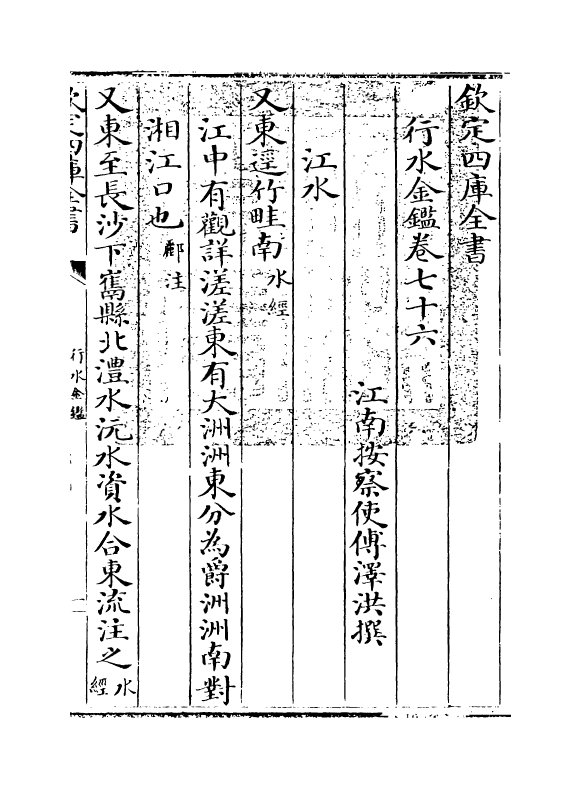 欽定四庫全書
行水金鑑卷七十六
江南按察使傅澤洪撰
江水
又東逕竹畦南水經
江中有觀詳溠溠東有大洲洲東分為爵洲洲南對
湘江口也酈注
又東至長沙下雋縣北澧水沅水資水合東流注之水經
欽定四庫全書
行水金鑑